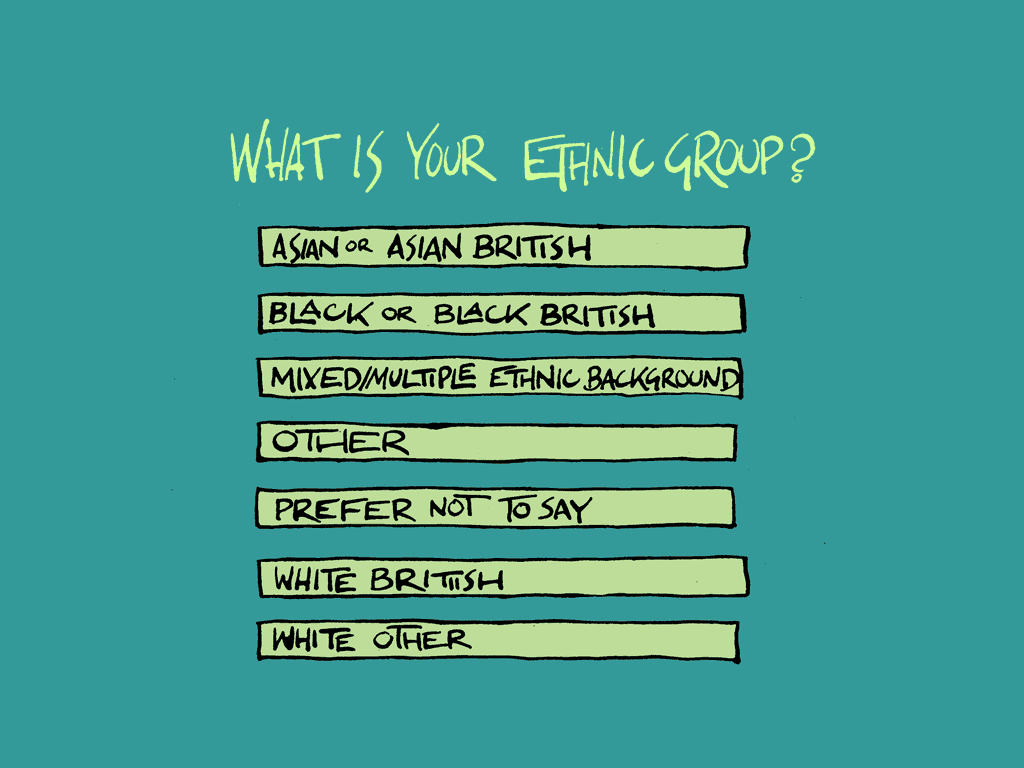 WHAT IS YOUR ETHNIC GROUP?
ASIAN OR ASIAN BRITISH
BLACK OR BLACK BRITISH
MIXED/MULTIPLE ETHNIC BACKGROUND
OTHER
PREFER NOT TO SAY
WHITE BRITISH
WHITE OTHER